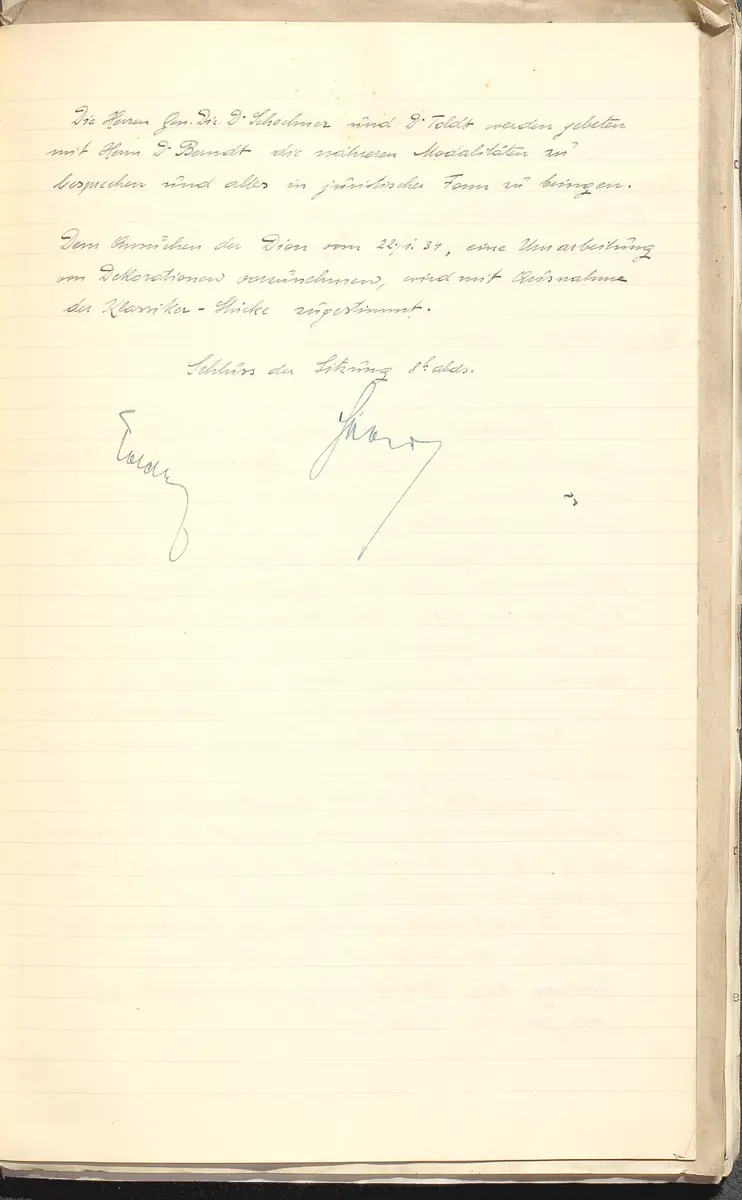 Die Herren Gen. Dir. Dr Schechner und Dr Toldt werden gebeten
mit Herrn Dr Berndt die näheren Modalitäten zu
besprechen und alles in juristischer Form zu bringen.
Dem Ansuchen der Dion vom 22./I. 34, eine Umarbeitung
von Dekorationen vorzunehmen, wird mit Ausnahme
der Klassiker-Stücke zugestimmt.
Schluss der Sitzung 8h abds.